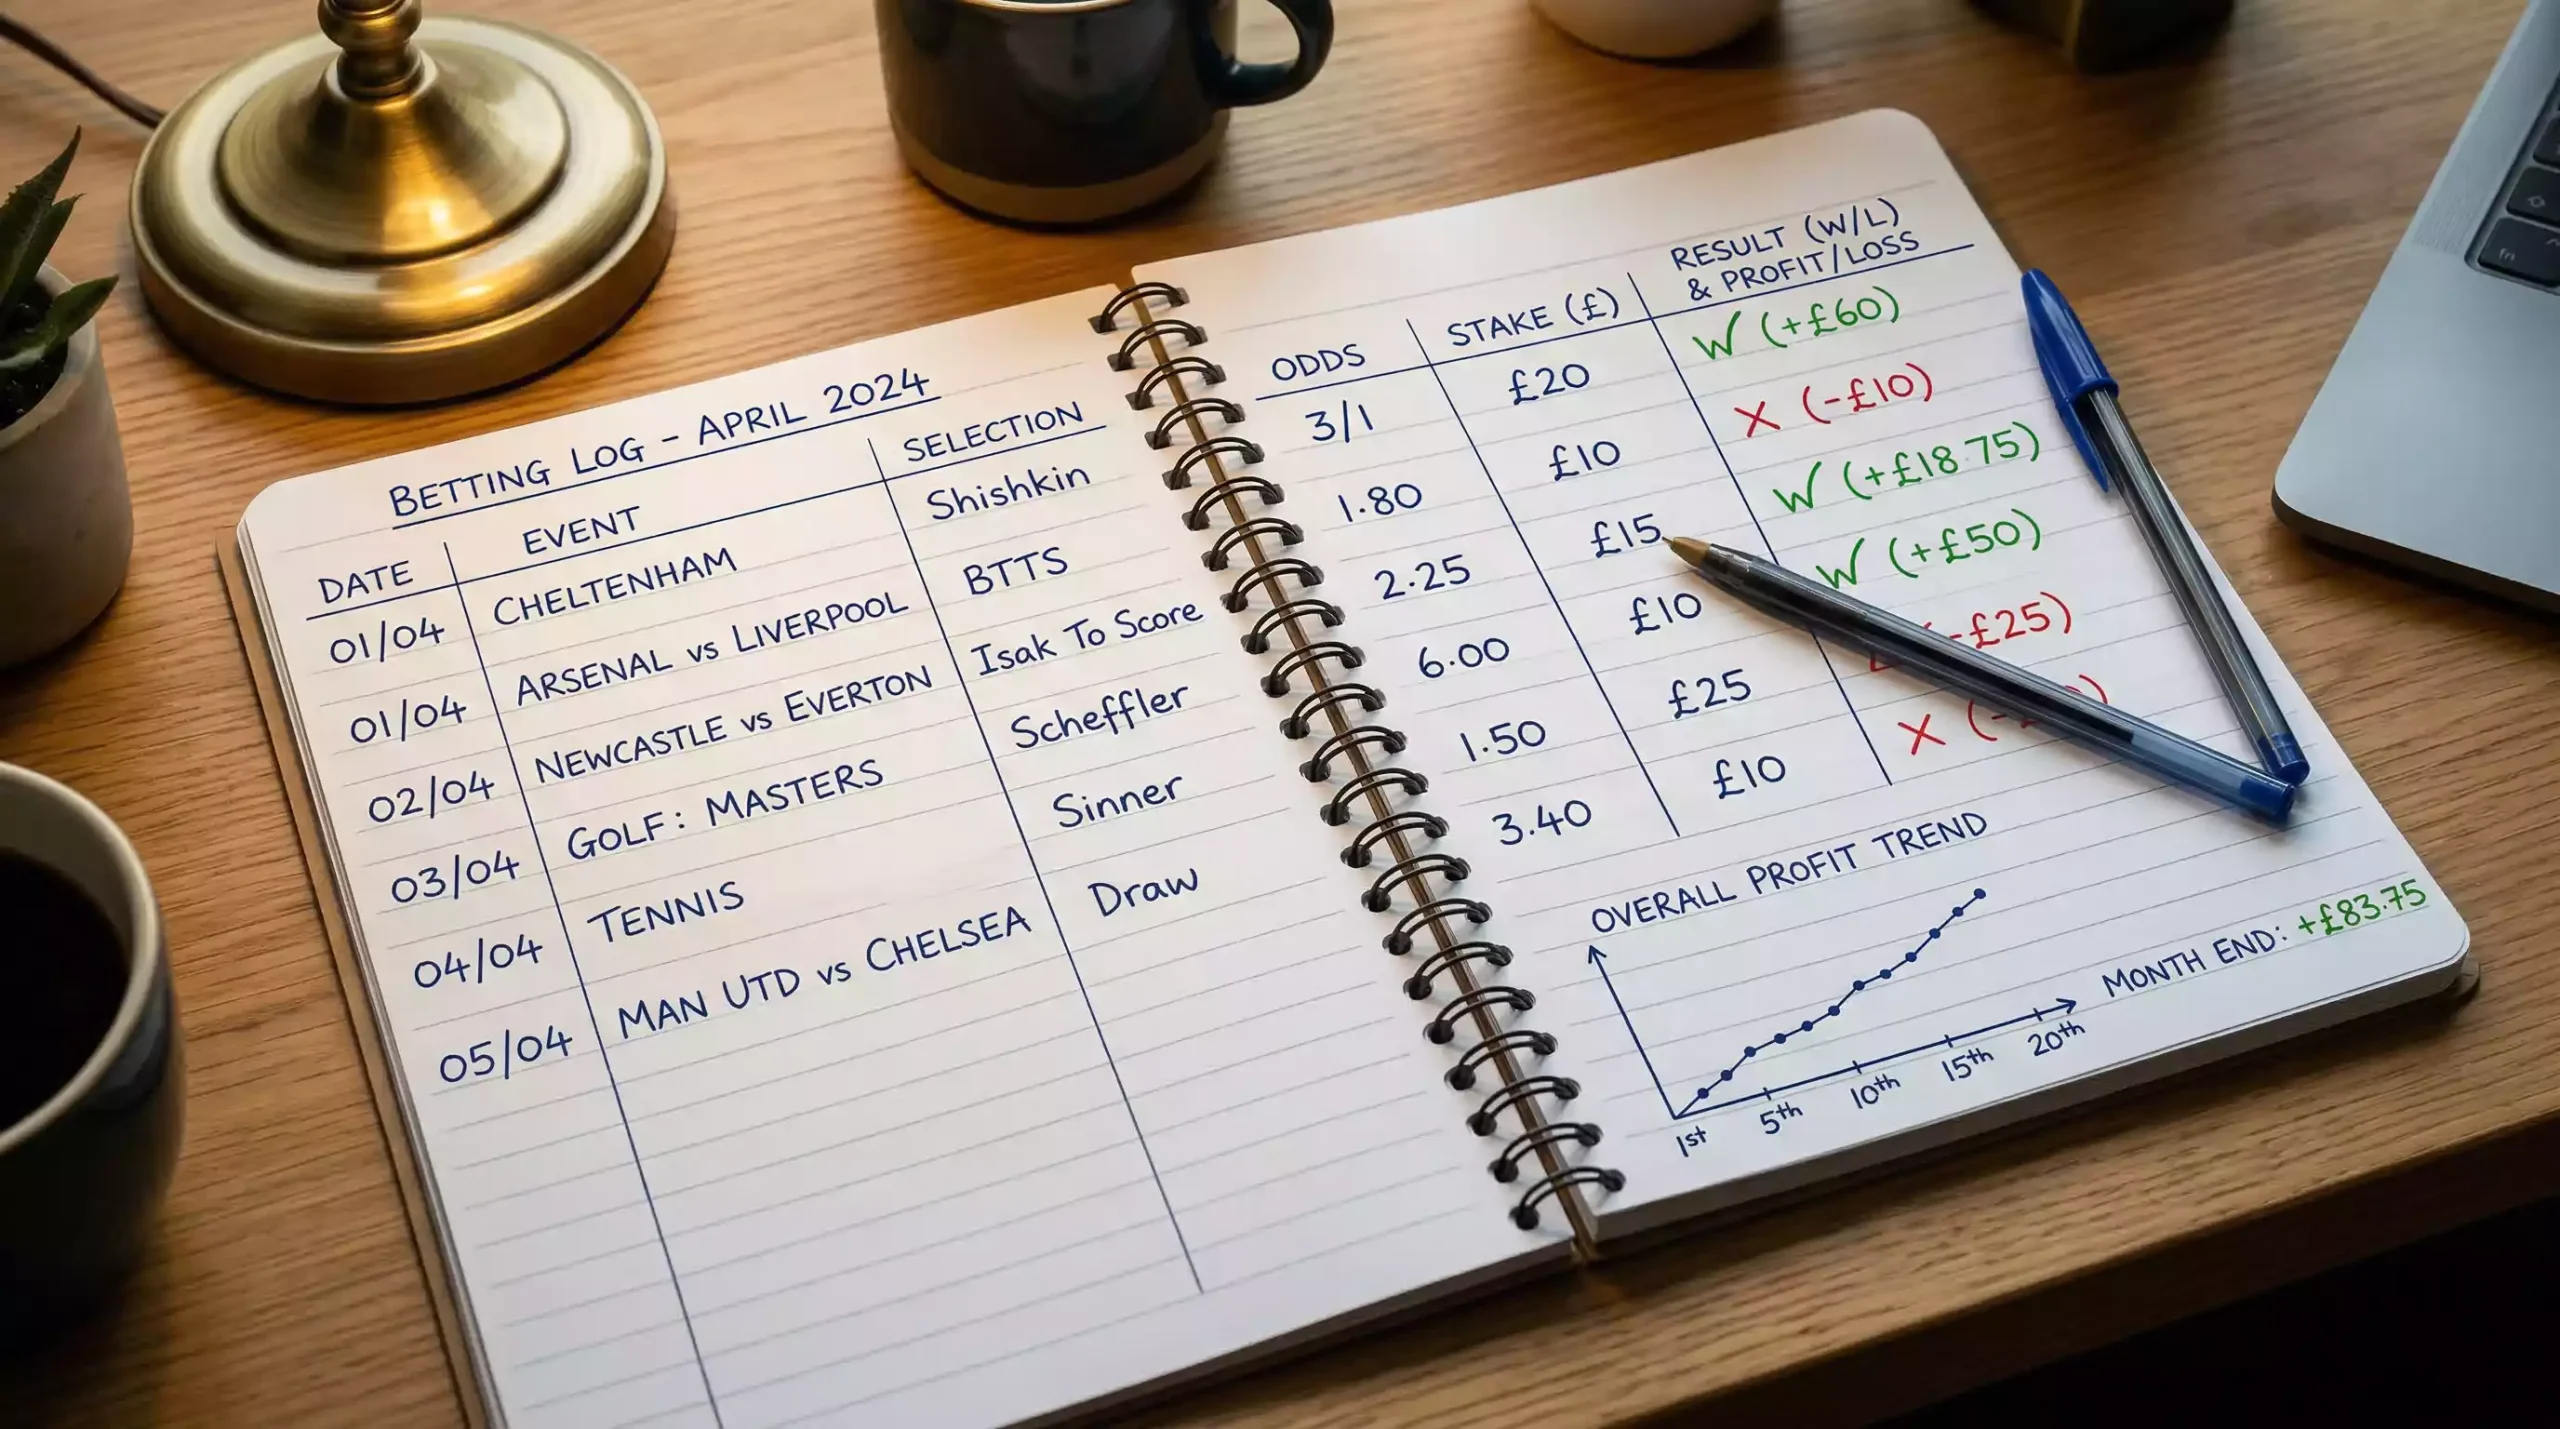 BETTING LOG - APRIL 2024
DATE EVENT SELECTION
01/04 CHELTENHAM Shishkin
01/04 ARSENAL vs LIVERPOOL BTTS
02/04 NEWCASTLE vs EVERTON Isak To Score
03/04 GOLF: MASTERS Scheffler
04/04 TENNIS Sinner
05/04 MAN UTD vs CHELSEA Draw
ODDS STAKE (£) RESULT (W/L)
& PROFIT/LOSS
3/1 £20 W (+£60)
1.80 £10 X (-£10)
2.25 £15 W (+£18.75)
6.00 £10 W (+£50)
1.50 £25 (-£25)
3.40 £10 X (-
OVERALL PROFIT TREND
1st 5th 10th 15th 20th
MONTH END: +£83.75
fn